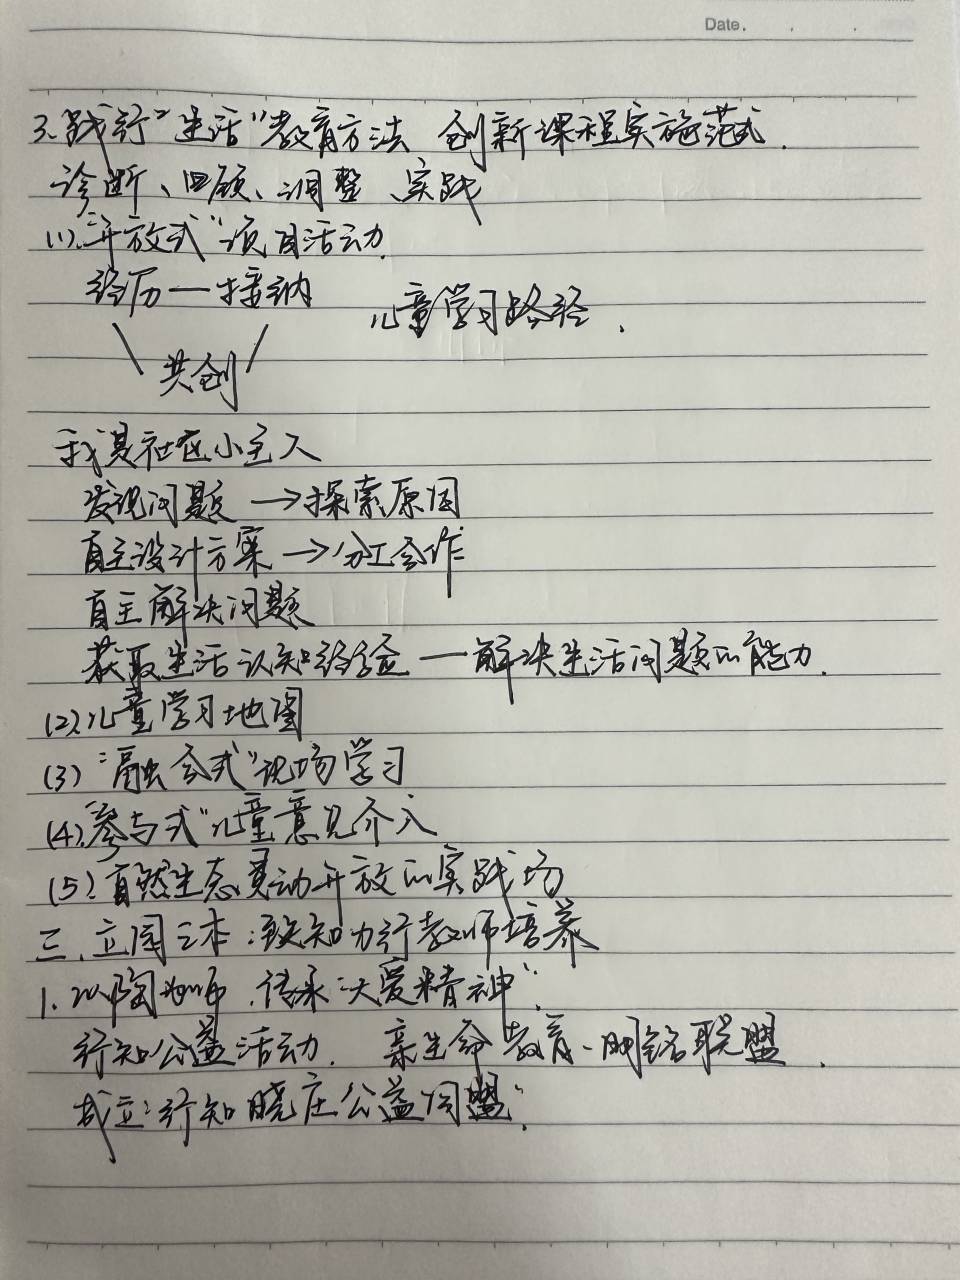 Date.
3.践行"生活"教育方法 创新课程实施范式.
诊断、回顾、调整、实践
(1)."开放式"项目活动.
经历—接纳
儿童学习路径.
共创
我是社区小主人
发现问题→探索原因
自主设计方案→分工合作
自主解决问题
获取生活认知经验—解决生活问题的能力.
(2)儿童学习地图
(3)"融合式"现场学习
(4)"参与式"儿童意见介入
(5)自然生态灵动开放的实践场
三、立园之本:致知力行教师培养
1.以陶为师,传承"大爱精神".
行知公益活动. 亲生命教育、联盟.
成立"行知晓庄公益同盟".